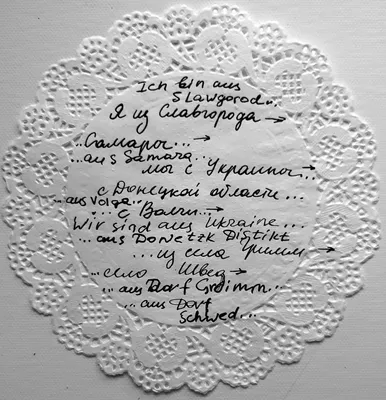 Ich bin aus
Slawgorod...
Я из Славгорода →
...Самары... →
...aus Samara...
мы с Украины... →
с Донецкой области...
...aus Volga...
... с Волги... →
Wir sind aus Ukraine...
... aus Donetzk Distikt
... из села Гримм →
...село Швед →
... aus Dorf Grimm...
... aus Dorf
Schwed...